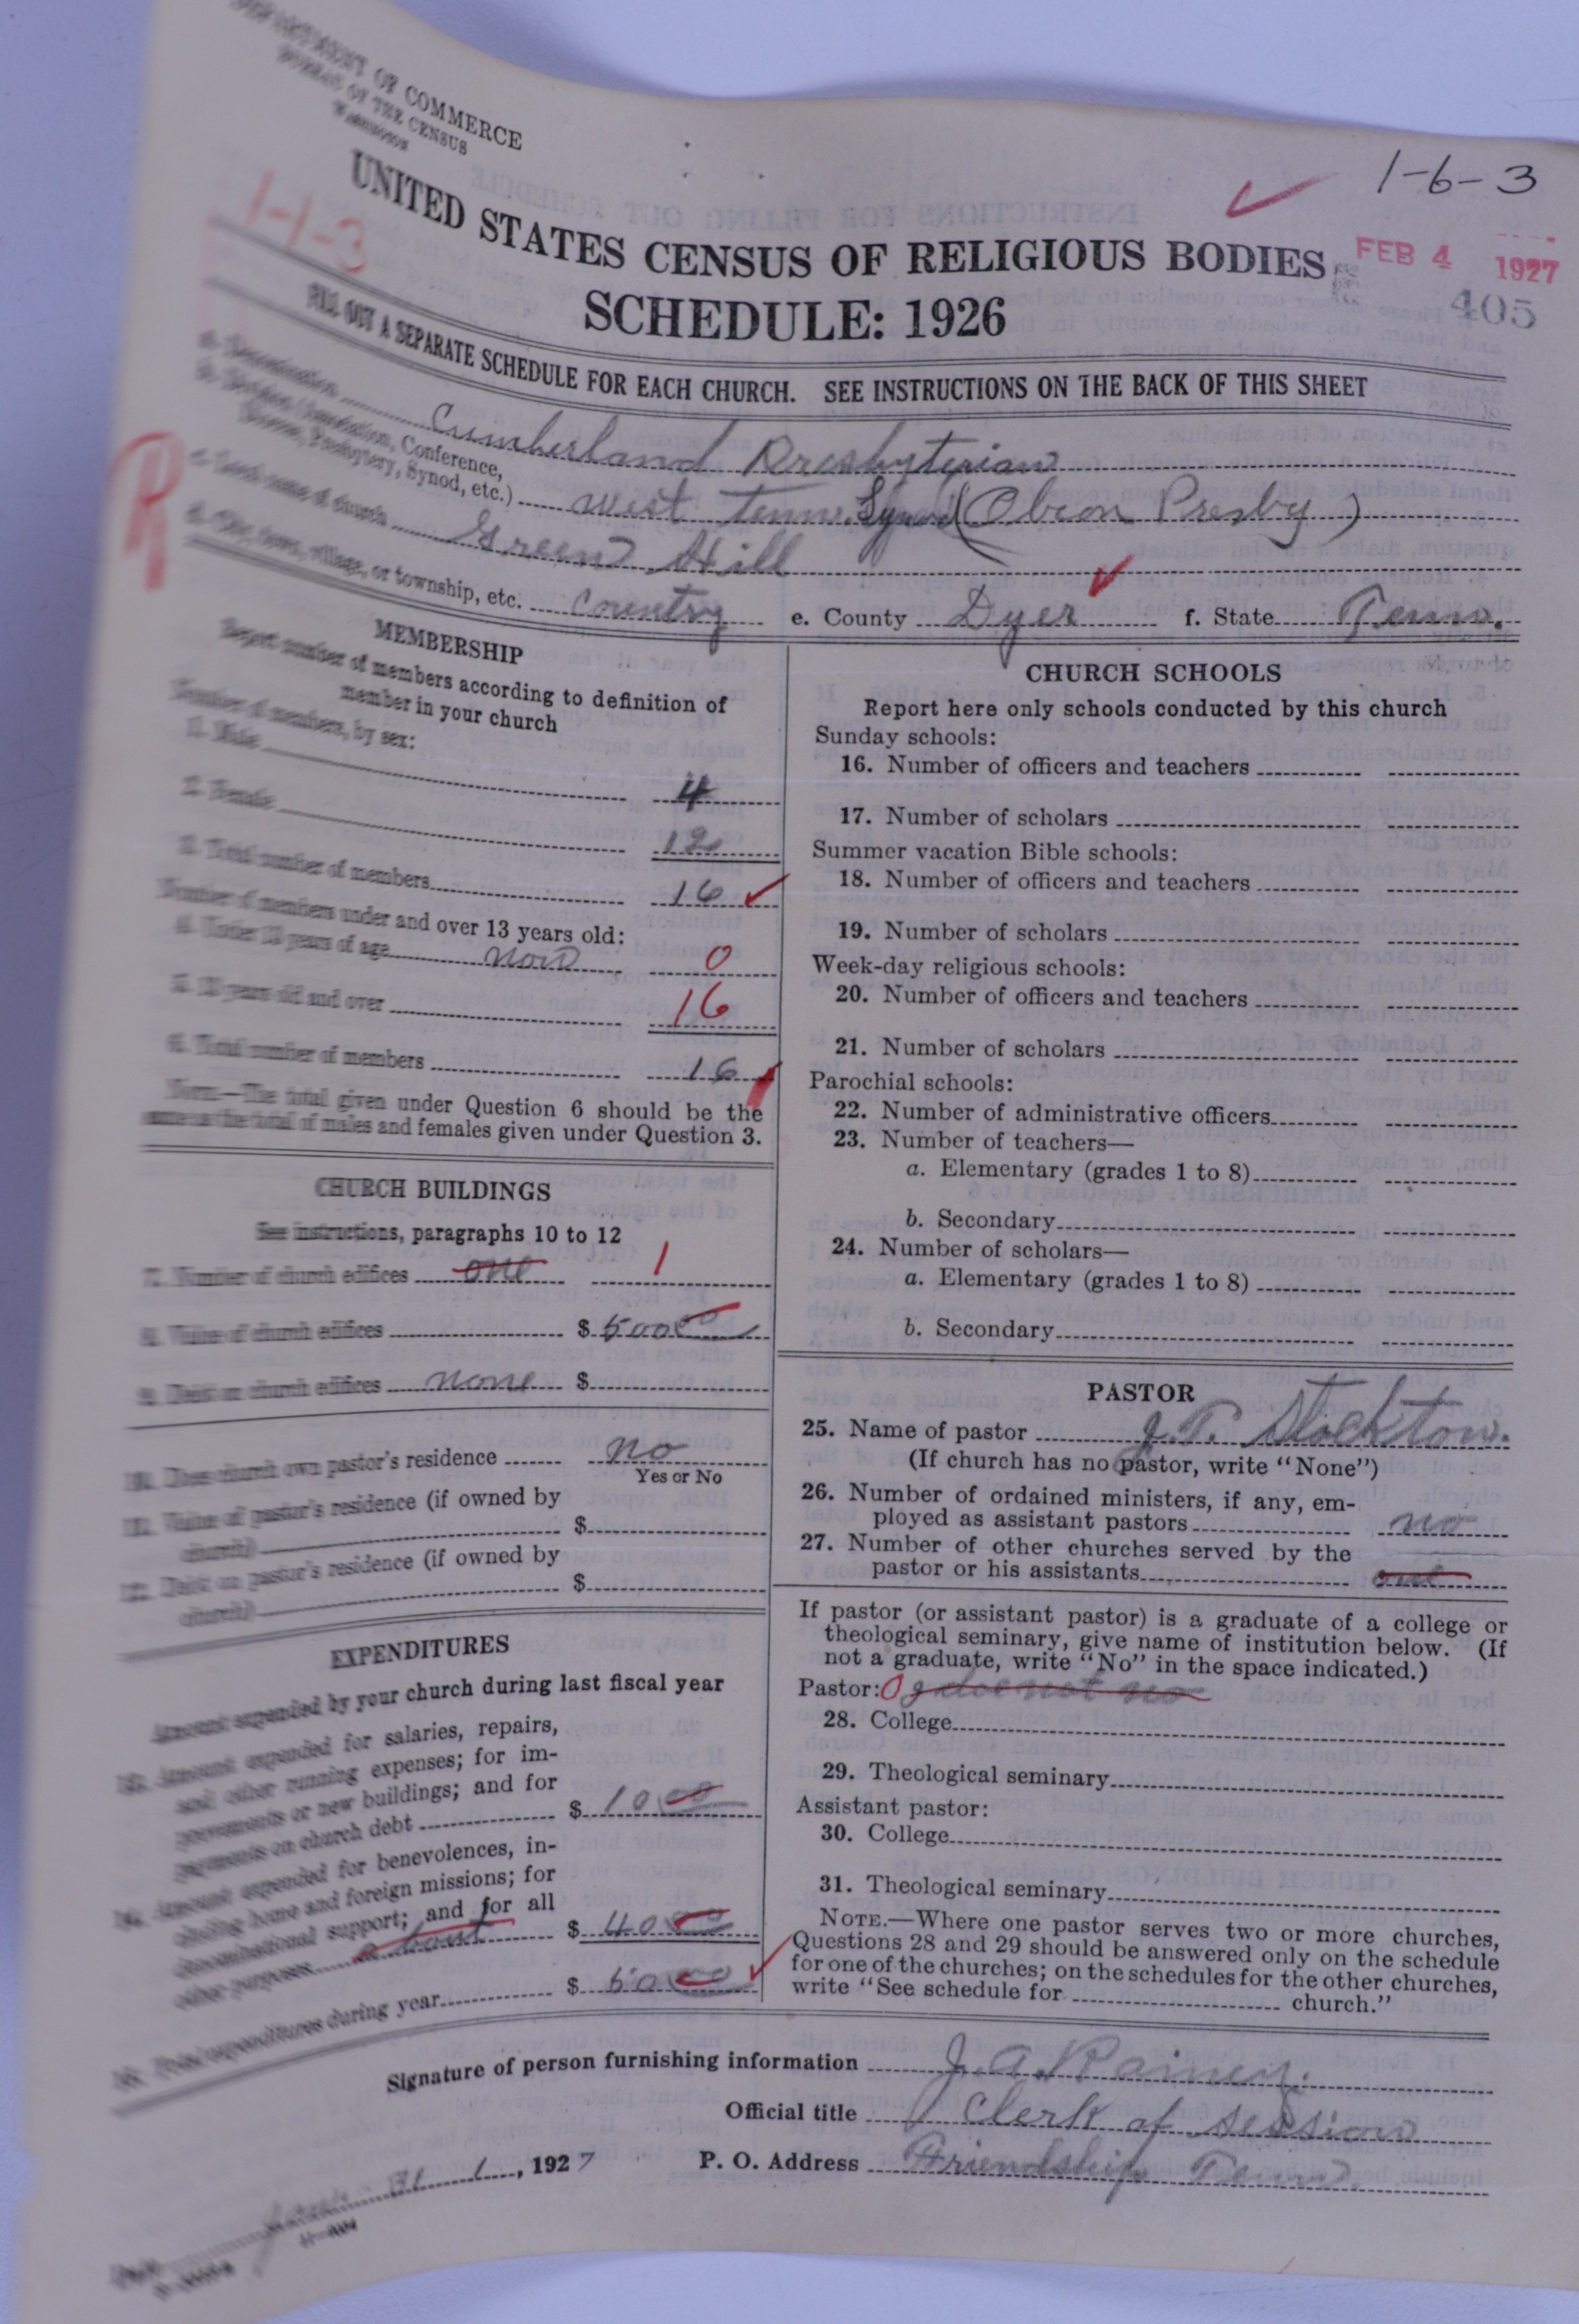 DEPARTMENT OF COMMERCE
BUREAU OF THE CENSUS
WASHINGTON
1-6-3
1-1-3
UNITED STATES CENSUS OF RELIGIOUS BODIES
FEB 4 1927
SCHEDULE: 1926
405
FILL OUT A SEPARATE SCHEDULE FOR EACH CHURCH. SEE INSTRUCTIONS ON THE BACK OF THIS SHEET
a. Denomination Cumberland Presbyterian
b. Division (Association, Conference, Diocese, Presbytery, Synod, etc.) West Tenn. Synod (Obion Presby)
R
c. Local name of church Green Hill
d. City, town, village, or township, etc. Country e. County Dyer f. State Tenn.
MEMBERSHIP
Report number of members according to definition of
member in your church
Number of members, by sex:
1. Male 4
2. Female 12
3. Total number of members 16
Number of members under and over 13 years old:
4. Under 13 years of age 0
5. 13 years old and over 16
6. Total number of members 16
NOTE.—The total given under Question 6 should be the
same as the total of males and females given under Question 3.
CHURCH BUILDINGS
See instructions, paragraphs 10 to 12
7. Number of church edifices one 1
8. Value of church edifices $ 50000
9. Debt on church edifices none $
10. Does church own pastor's residence no
Yes or No
11. Value of pastor's residence (if owned by
church) $
12. Debt on pastor's residence (if owned by
church) $
EXPENDITURES
Amount expended by your church during last fiscal year
13. Amount expended for salaries, repairs,
and other running expenses; for im-
provements or new buildings; and for
payments on church debt $ 10 00
14. Amount expended for benevolences, in-
cluding home and foreign missions; for
denominational support; and for all
other purposes about $ 40 00
15. Total expenditures during year $ 50 00
CHURCH SCHOOLS
Report here only schools conducted by this church
Sunday schools:
16. Number of officers and teachers
17. Number of scholars
Summer vacation Bible schools:
18. Number of officers and teachers
19. Number of scholars
Week-day religious schools:
20. Number of officers and teachers
21. Number of scholars
Parochial schools:
22. Number of administrative officers
23. Number of teachers—
a. Elementary (grades 1 to 8)
b. Secondary
24. Number of scholars—
a. Elementary (grades 1 to 8)
b. Secondary
PASTOR
25. Name of pastor J.T. Stockton.
(If church has no pastor, write "None")
26. Number of ordained ministers, if any, em-
ployed as assistant pastors no
27. Number of other churches served by the
pastor or his assistants one
If pastor (or assistant pastor) is a graduate of a college or
theological seminary, give name of institution below. (If
not a graduate, write "No" in the space indicated.)
Pastor: 0 I do not no
28. College
29. Theological seminary
Assistant pastor:
30. College
31. Theological seminary
NOTE.—Where one pastor serves two or more churches,
Questions 28 and 29 should be answered only on the schedule
for one of the churches; on the schedules for the other churches,
write "See schedule for church."
Signature of person furnishing information J. A. Rainey.
Official title Clerk of session
Date , 1927 P. O. Address Friendship Tenn.